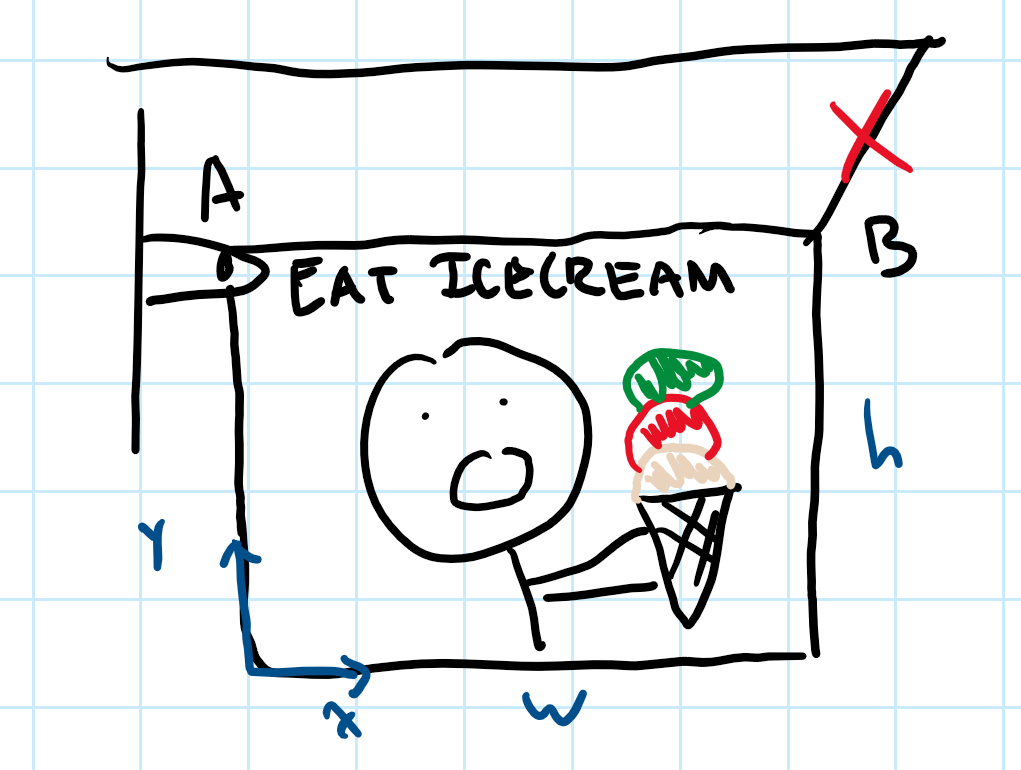 A
B
EAT ICECREAM
h
Y
x
w